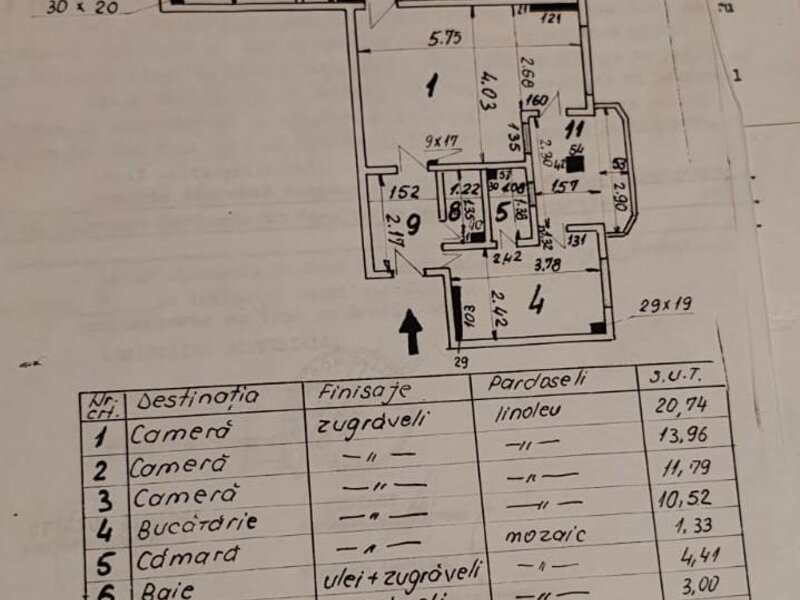 30 x 20
21
121
5.75
1
4.03
2.68
160
11
135
2.30
54
42
157
2.90
9x17
152
9
2.17
1.22
8
1.35
40
57
30
108
5
1.38
1.32
131
2.42
3.78
4
2.42
103
29x19
29
1
Nr. crt. Destinația Finisaje Pardoseli S.U.T.
1 Cameră zugrăveli linoleu 20,74
2 Cameră —〃— —〃— 13,96
3 Cameră —〃— —〃— 11,79
4 Bucătărie —〃— —〃— 10,52
5 Cămară —〃— mozaic 1.33
6 Baie ulei+zugrăveli —〃— 4,41
—〃— 3,00